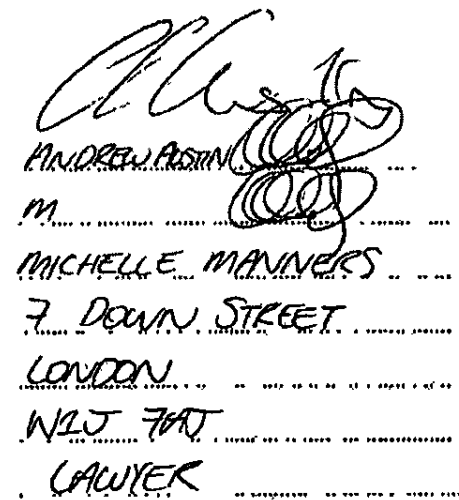 ANDREW AUSTIN
M
MICHELLE MANNERS
7 DOWN STREET
LONDON
W1J 7AJ
LAWYER